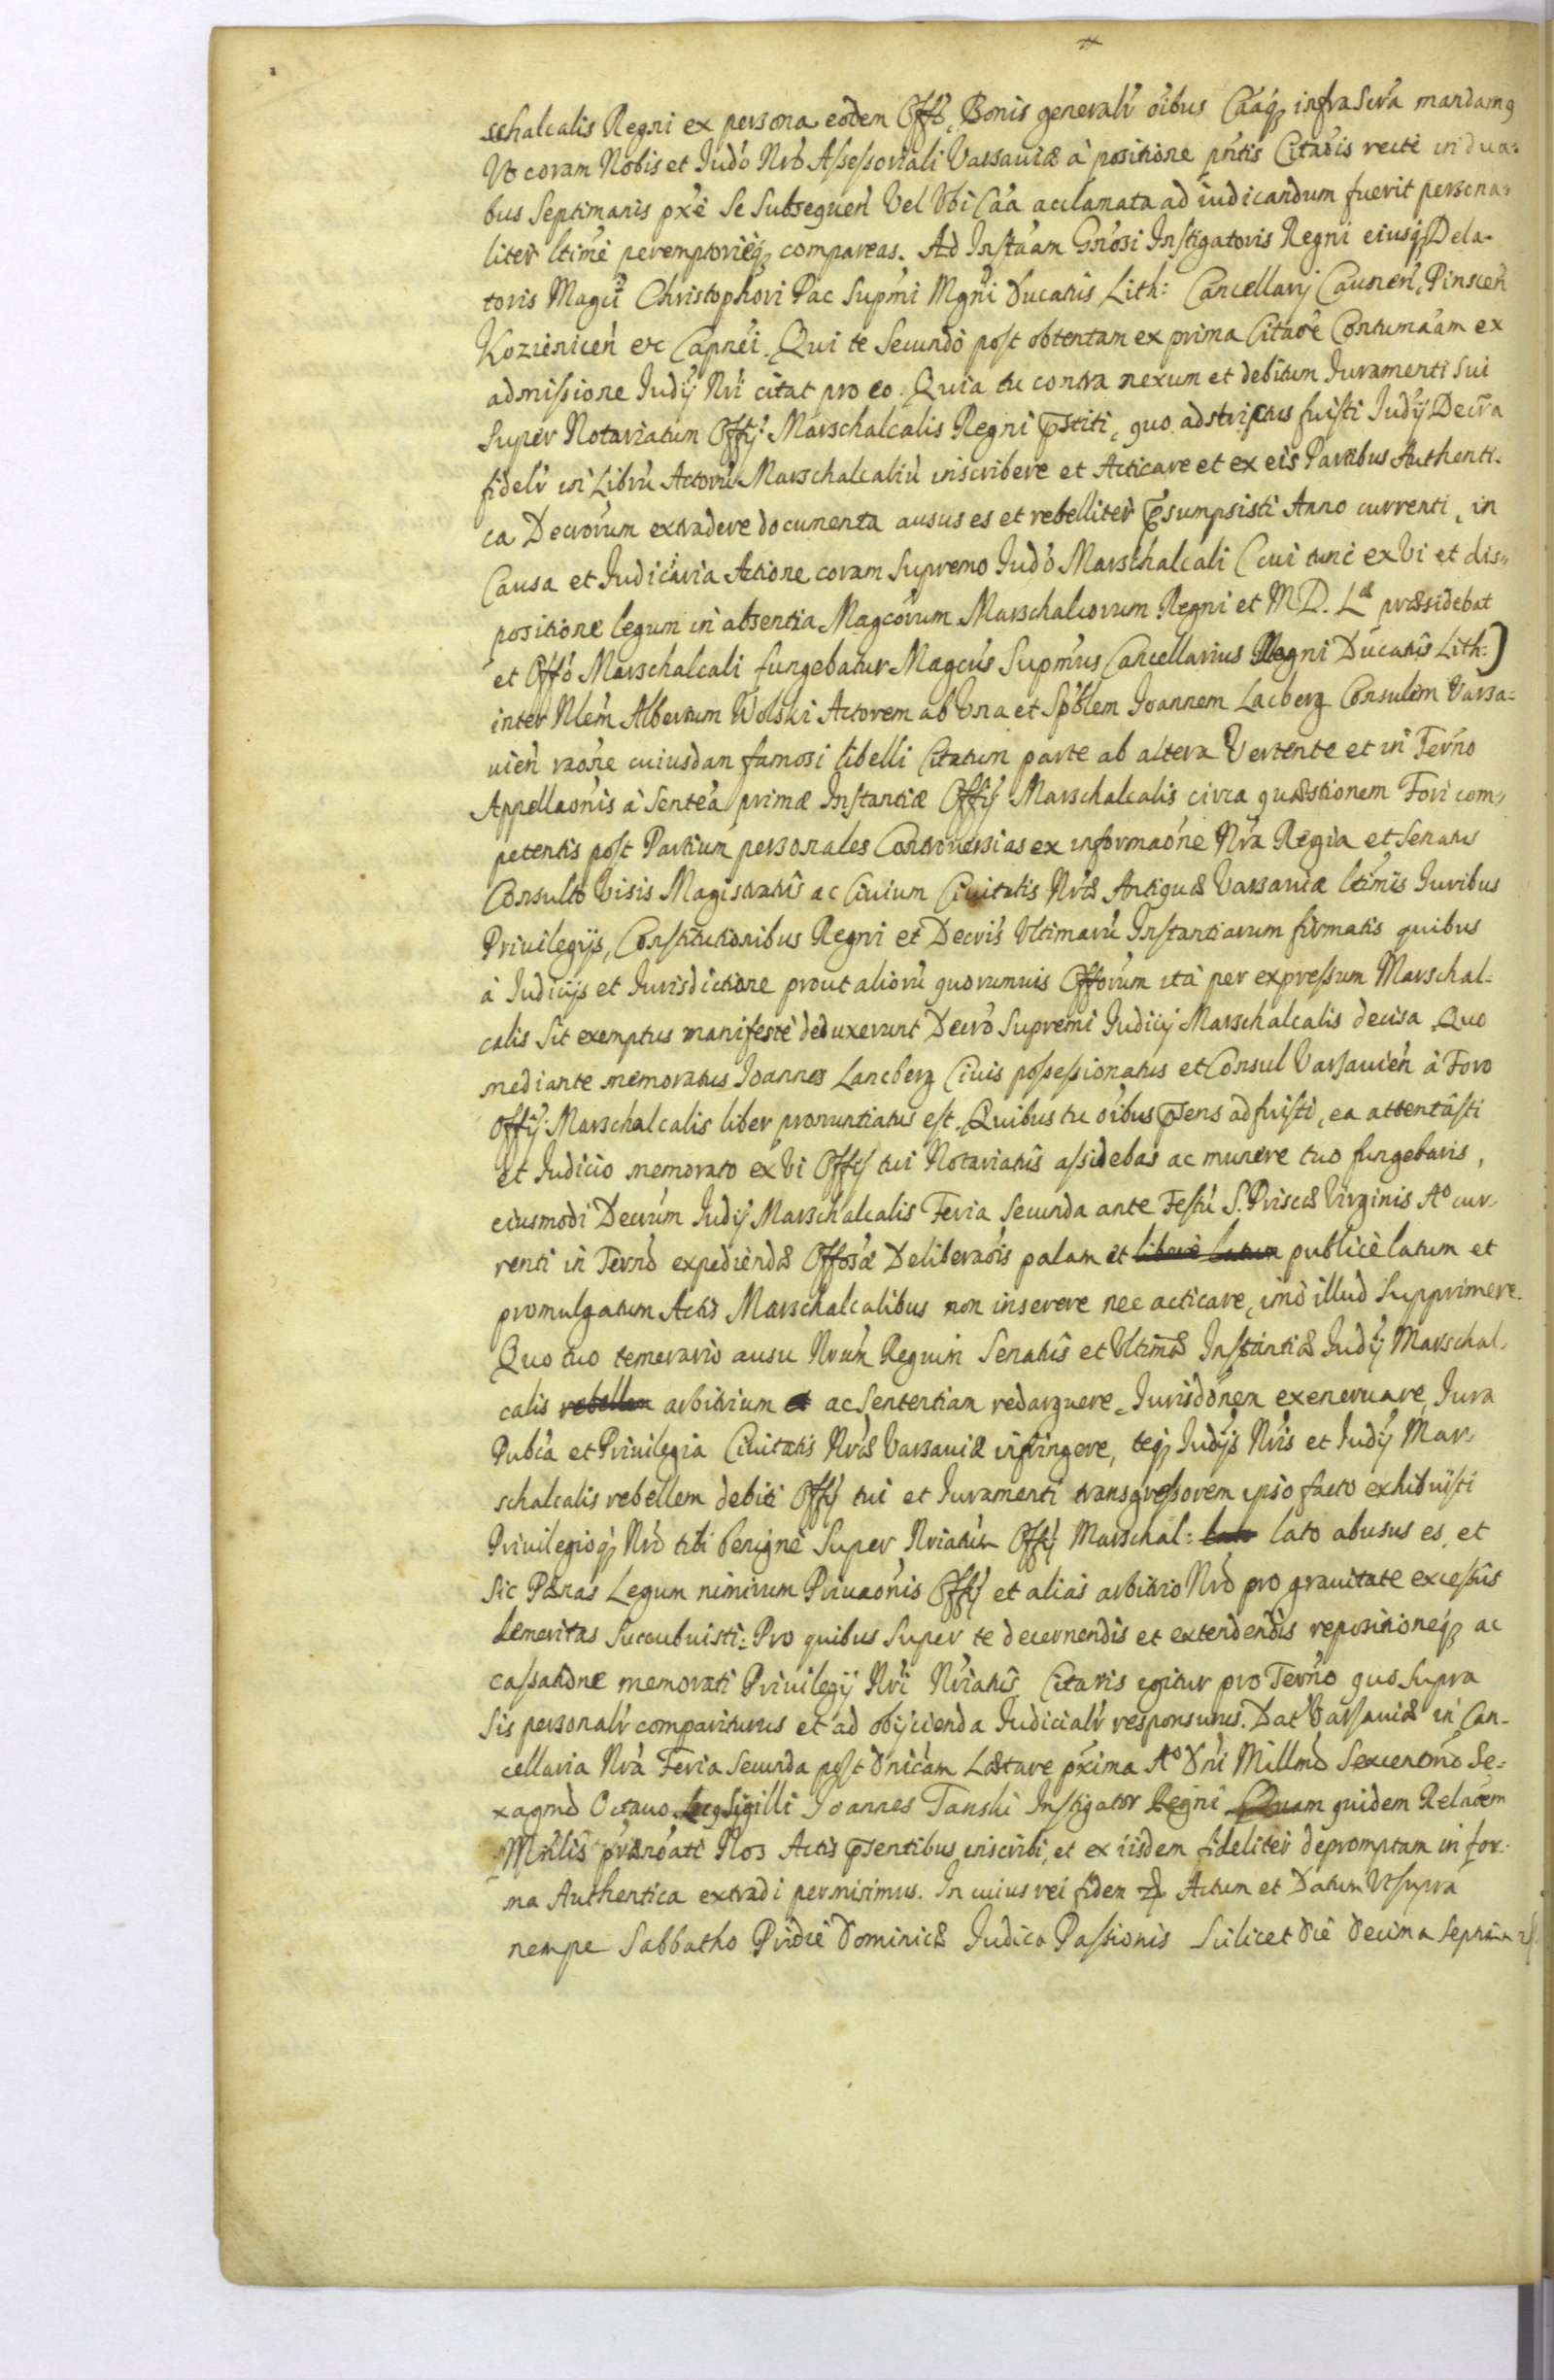 schalcalis Regni ex persona eodem Offo, Bonis generalr oibus Caaq infra Scra mandamq
Vt coram Nobis et Judo Nro Assessoriali Varsauiæ à positione pntis Citaois recte in dua-
bus Septimanis pxe Se Subsequen Vel Vbi Caa acclamata ad iudicandum fuerit persona-
liter ltime peremptorieq compareas. Ad Instaam Gnosi Instigatoris Regni eiusq Dela-
toris Magci Christophori Pac Supmi Mgni Ducatus Lith: Cancellarij Caunen, Pinscen
Kozienicen etc Capnei. Qui te Secundo post obtentam ex prima Citaoe Contumaam ex
admissione Judij Nri citat pro eo. Quia tu contra nexum et debitum Juramenti Sui
Super Notariatum Offij Marschalcalis Regni pstiti, quo adstrictus fuisti Judij Decra
fidelr in Libru Actoru Marschalcaliu inscribere et Acticare et ex eis Partibus Authenti-
ca Decrorum extradere documenta ausus es et rebelliter psumpsisti Anno currenti, in
Causa et Judiciaria Actione coram Supremo Judo Marschalcali (cui tunc ex Vi et dis-
positione legum in absentia Magcorum Marschalcorum Regni et M.D. Læ præsidebat
et Offo Marschalcali fungebatur Magcus Supmus Cancellarius Magni Ducatus Lith:)
inter Nlem Albertum Wolski Actorem ab Vna et Spblem Joannem Lacberg Consulem Varsa-
uien raone cuiusdam famosi libelli Citatum parte ab altera Vertente et in Termo
Appellaonis à Sentea primæ Instantiæ Offij Marschalcalis circa quæstionem Fori com-
petentis post Partium personales Controuersias ex informaone Nra Regia et Senatus
Consulto Visis Magistratus ac Ciuium Ciuitatis Nræ Antiquæ Varsauiæ ltimis Juribus
Priuilegijs, Constitutionibus Regni et Decris Vltimaru Instantiarum firmatis quibus
à Judicijs et Jurisdictione prout alioru quorumuis Offorum ita per expressum Marschal-
calis Sit exemptus manifeste deduxerunt Decro Supremi Judicij Marschalcalis decisa Quo
mediante memoratus Joannes Lancberg Ciuis possessionatus et Consul Varsauien à Foro
Offij Marschalcalis liber pronuntiatus est. Quibus tu oibus psens adfuisti, ea attentasti
et Judicio memorato ex Vi Offij tui Notariatus assidebas ac munere tuo fungebaris,
eiusmodi Decrum Judij Marschalcalis Feria Secunda ante Festu S. Priscæ Virginis Ao cur-
renti in Termo expediendæ Offosæ Deliberaois palam et libere latum publice latum et
promulgatum Actis Marschalcalibus non inserere nec acticare, imo illud Supprimere.
Quo tuo temerario ausu Nrum Regium Senatus et Vltimæ Instantiæ Judij Marschal-
calis rebellem arbitrium et ac Sententiam redarguere, Jurisdonem exeneruare, Jura
Pubca et Priuilegia Ciuitatis Nræ Varsauiæ infringere, teq Judijs Nris et Judij Mar-
schalcalis rebellem debiti Offij tui et Juramenti transgressorem ipso facto exhibuisti
Priuilegioq Nro tibi benigne Super Nriatum Offij Marschal: lato lato abusus es, et
Sic Pænas Legum nimirum Priuaonis Offij et alias arbitrio Nro pro grauitate excessus
demeritas Succubuisti: Pro quibus Super te decernendis et extendendis repositioneq ac
cassatione memorati Priuilegij Nri Nriatus Citaris igitur pro Termo quo Supra
Sis personalr compariturus et ad obijcienda Judicialr responsurus. Dat Varsauiæ in Can-
cellaria Nra Feria Secunda post Dnicam Lætare pxima Ao Dni Millmo Sexcentmo Se-
xagmo Octauo. Locq Sigilli Joannes Tanski Instigator Regni Quam quidem Relaoem
Mnlis prænoati Nos Actis psentibus inscribi, et ex iisdem fideliter depromptam in for-
ma Authentica extradi permisimus. In cuius rei fidem Actum et Datum Vt supra
nempe Sabbatho Pridie Dominicæ Judica Passionis Scilicet Die Decima Septima